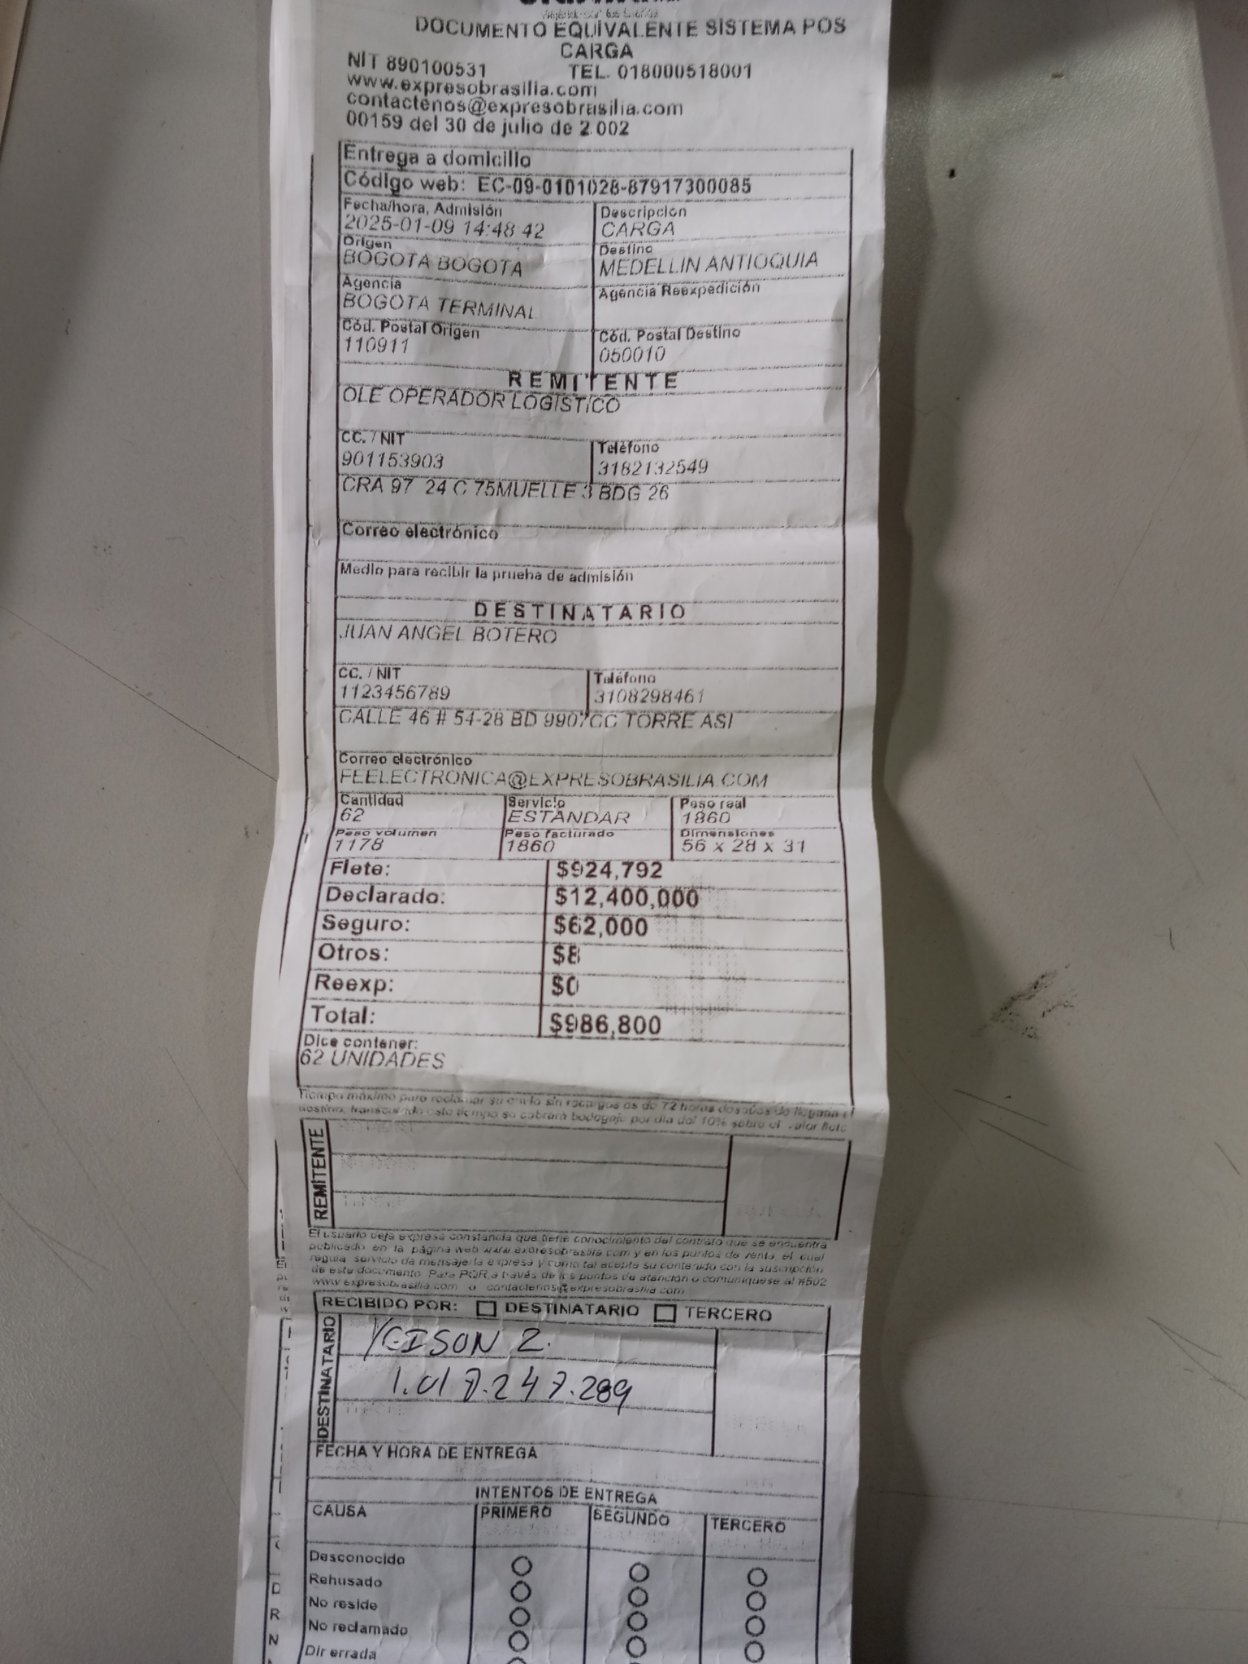 DOCUMENTO EQUIVALENTE SISTEMA POS
CARGA
NIT 890100531 TEL. 018000518001
www.expresobrasilia.com
contactenos@expresobrasilia.com
00159 del 30 de julio de 2.002
Entrega a domicilio
Código web: EC-09-0101028-87917300085
Fecha/hora, Admisión Descripción
2025-01-09 14:48:42 CARGA
Origen Destino
BOGOTA BOGOTA MEDELLIN ANTIOQUIA
Agencia Agencia Reexpedición
BOGOTA TERMINAL
Cód. Postal Origen Cód. Postal Destino
110911 050010
REMITENTE
OLE OPERADOR LOGISTICO
CC. / NIT Teléfono
901153903 3182132549
CRA 97 24 C 75MUELLE 3 BDG 26
Correo electrónico
Medio para recibir la prueba de admisión
DESTINATARIO
JUAN ANGEL BOTERO
CC. / NIT Teléfono
1123456789 3108298461
CALLE 46 # 54-28 BD 9907CC TORRE ASI
Correo electrónico
FEELECTRONICA@EXPRESOBRASILIA.COM
Cantidad Servicio Peso real
62 ESTANDAR 1860
Peso volumen Peso facturado Dimensiones
1178 1860 56 x 28 x 31
Flete: $924,792
Declarado: $12,400,000
Seguro: $62,000
Otros: $8
Reexp: $0
Total: $986,800
Dice contener:
62 UNIDADES
Tiempo máximo para reclamar su envío sin recargos es de 72 horas después de llegada el
destino, transcurrido este tiempo se cobrará bodegaje por día del 10% sobre el valor flete
REMITENTE
El usuario deja expresa constancia que tiene conocimiento del contrato que se encuentra
publicado en la página web www.expresobrasilia.com y en los puntos de venta, el cual
regula servicio de mensajería expresa y como tal acepta su contenido con la suscripción
de este documento. Para PQR a través de los puntos de atención o comuníquese al #502
www.expresobrasilia.com o contactenos@expresobrasilia.com
RECIBIDO POR: DESTINATARIO TERCERO
DESTINATARIO
YEISON Z.
1.017.247.289
FECHA Y HORA DE ENTREGA
INTENTOS DE ENTREGA
CAUSA PRIMERO SEGUNDO TERCERO
Desconocido
Rehusado
No reside
No reclamado
Dir errada